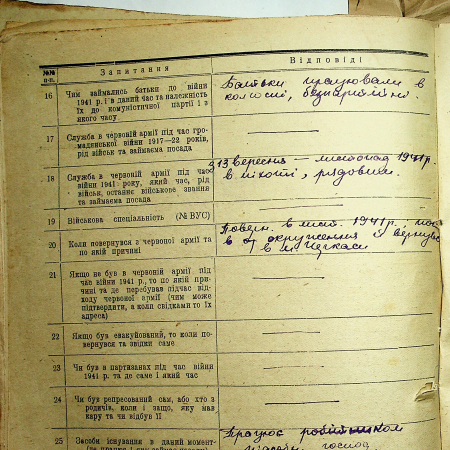 №№ п-п. Запитання Відповіді
16 Чим займались батьки до війни
1941 р. і в даний час та належність
їх до комуністичної партії і з
якого часу
Батьки працювали в
колгоспі, безпартійні.
17 Служба в червоній армії під час гро-
маденської війни 1917—22 років,
рід військ та займаєма посада
18 Служба в червоній армії під час
війни 1941 року, який час, рід
військ, останнє військове звання
та займаєма посада
З 13 вересня — листопад 1941 р.
в піхоті, рядовим.
19 Військова спеціальність (№ ВУС)
20 Коли повернувся з червоної армії та
по якій причині
Поверн. в лист. 1941 р.
в окруження і вернувс
в м Черкаси
21 Якщо не був в червоній армії під
час війни 1941 р., то по якій при-
чині та де перебував підчас від-
ходу червоної армії (чим може
підтвердити, а коли свідками то їх
адреса)
22 Якщо був евакуйований, то коли по-
вернувся та звідки саме
23 Чи був в партизанах під час війни
1941 р. та де саме і який час
24 Чи був репресований сам, або хто з
родичів, коли і защо, яку мав
кару та чи відбув її
25 Засоби існування в даний момент
Працює робітником
господ